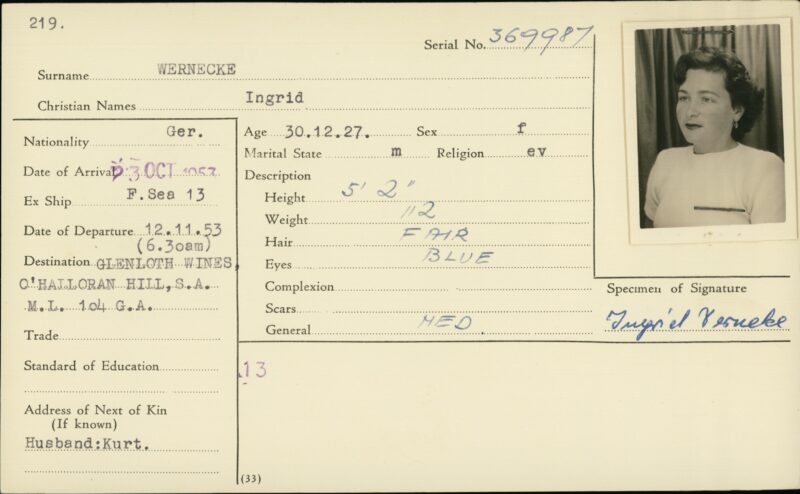 219.
Serial No. 369987
Surname WERNECKE
Christian Names Ingrid
Nationality Ger.
Date of Arrival 3 OCT 1953
Ex Ship F.Sea 13
Date of Departure 12.11.53
(6.30am)
Destination GLENLOTH WINES,
O'HALLORAN HILL, S.A.
M.L. 104 G.A.
Trade
Standard of Education
Address of Next of Kin
(If known)
Husband:Kurt.
Age 30.12.27. Sex f
Marital State m Religion ev
Description
Height 5' 2"
Weight 112
Hair FAIR
Eyes BLUE
Complexion
Scars
General MED.
Specimen of Signature
Ingrid Wernecke
13
(33)